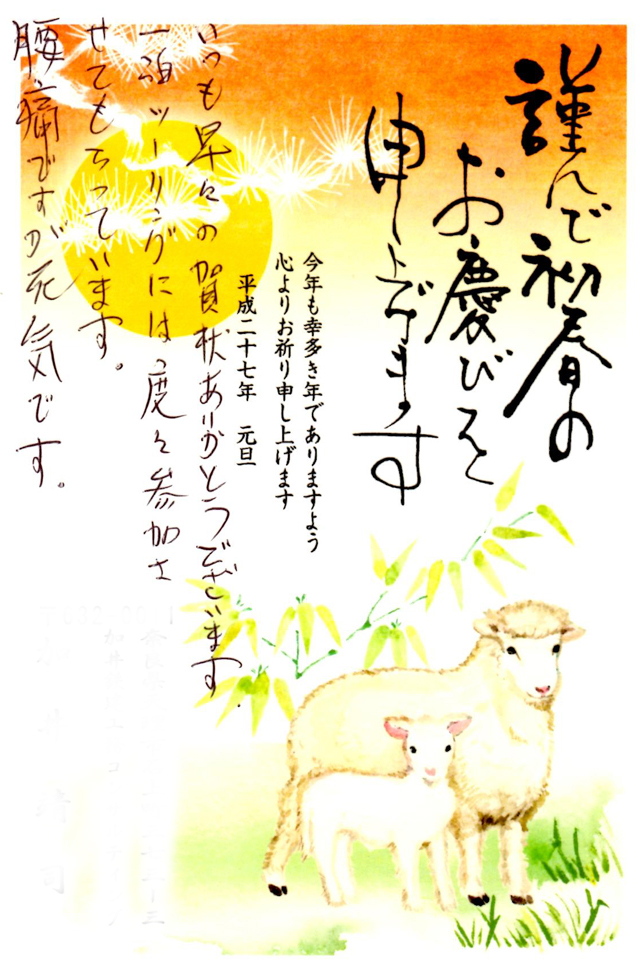 謹んで初春の
お慶びを
申し上げます
今年も幸多き年でありますよう
心よりお祈り申し上げます
平成二十七年 元旦
いつも早々の賀状ありがとうございます。
一泊ツーリングには度々参加さ
せてもらっています。
腰痛ですが元気です。